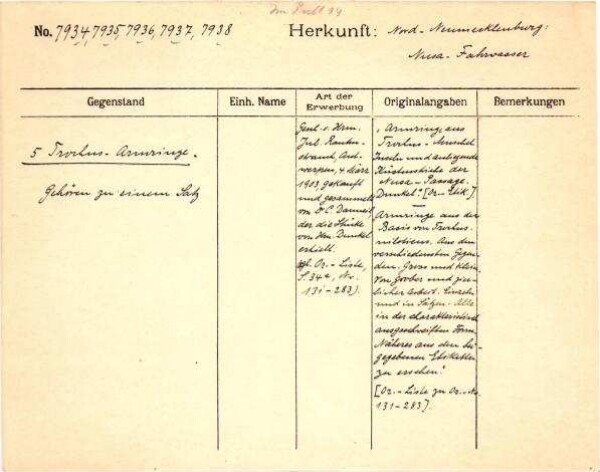 Im Publ 34
No. 7934, 7935, 7936, 7937, 7938
Herkunft: Nord-Neumecklenburg:
Nusa-Fahrwasser
Gegenstand
Einh. Name
Art der
Erwerbung
Originalangaben
Bemerkungen
5 Trochus-Armringe.
Gehören zu einem Satz
Gesch. v. Hrn.
Jul.
4 März
1903, gekauft
und gesammelt
von
der die Stücke
von Hrn. Dunkel
erhielt.
cf. Or.-Liste,
S. 34a, No.
131-283).
"Armringe aus
Trochus-Muschel
Inseln und anliegende
Küstenstriche der
Nusa-Passage.
Dunkel." [Or.-Etik.].
Armringe aus der
Basis von Trochus
niloticus. Aus den
verschiedensten Gegen-
den. Gross und klein.
Von grober und zier-
licher Arbeit. Einzeln
und in Sätzen. Alle
in der charakteristisch
ausgeschweiften Form.
Näheres aus den bei-
gegebenen Etiketten
zu ersehen."
[Or.-Liste zu Or.-No.
131-283].